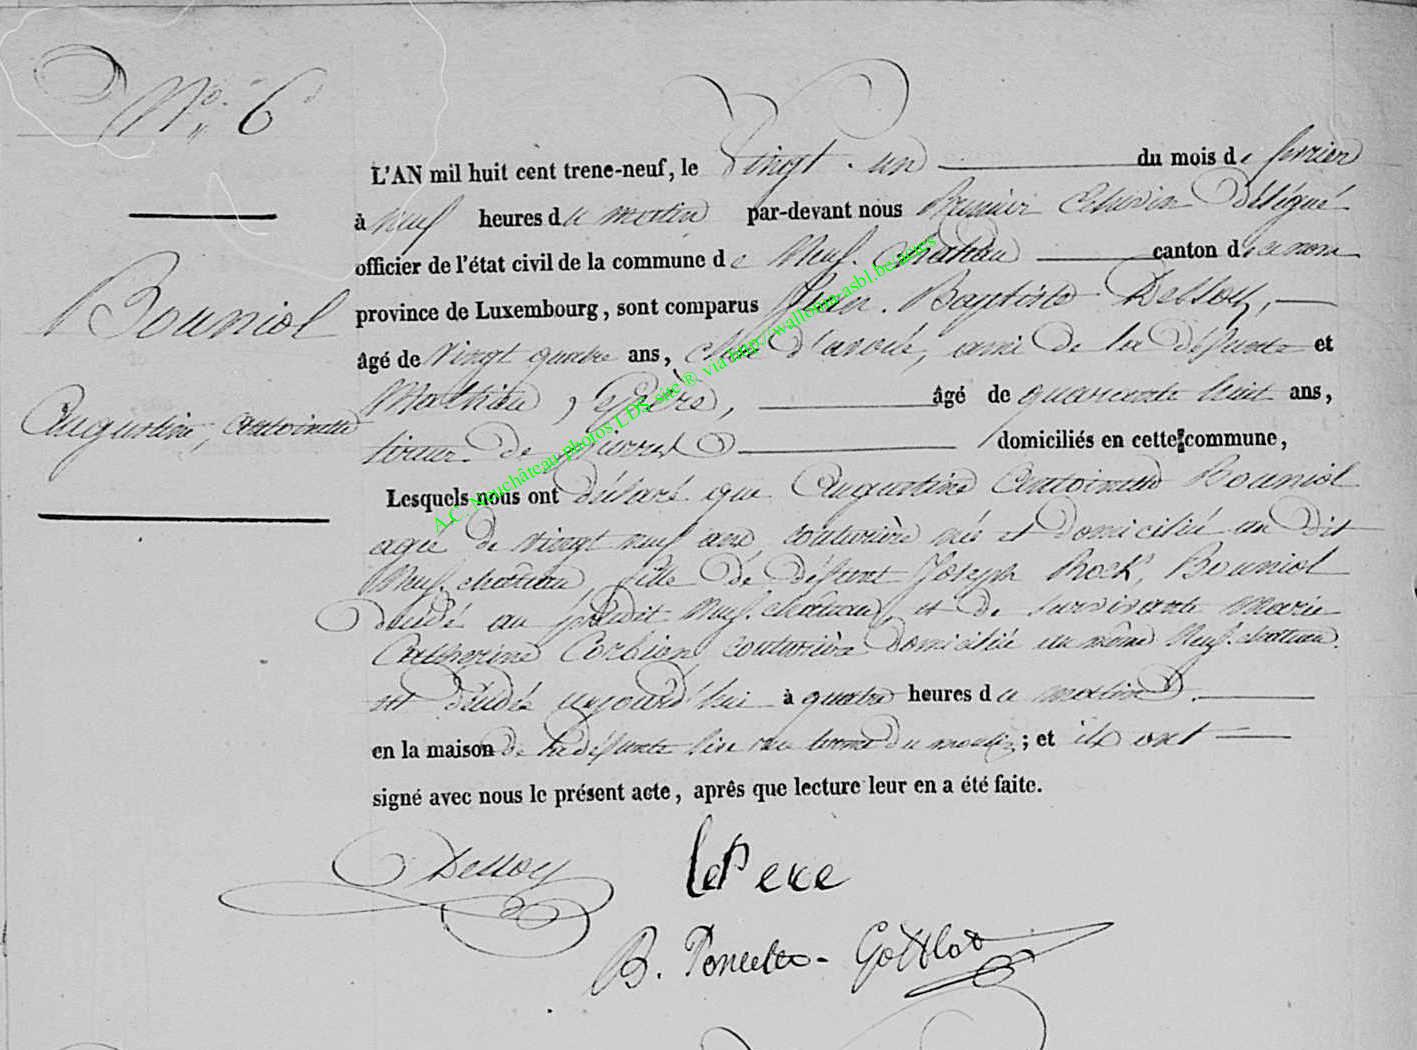 N° 6
Bouniol
Augustine, Antoinette
L'AN mil huit cent trene-neuf, le Vingt-un du mois de fevrier
à neuf heures du matin par-devant nous Premier Echevin délégué
officier de l'état civil de la commune de Neuf-chateau canton du même nom
province de Luxembourg, sont comparus Jean-Baptiste Dessoy,
âgé de vingt quatre ans, clerc d'avoué, ami de la défunte et
Mathieu Lepère, âgé de quarante huit ans,
tireur de pierres domiciliés en cette commune,
Lesquels nous ont déclaré que Augustine Antoinette Bouniol
agée de vingt neuf ans couturière née et domiciliée au dit
Neuf-chateau, fille de défunt Joseph Roch, Bouniol
décédé au prédit Neuf-chateau, et de survivante Marie
Catherine Corbion couturière domiciliée au même Neuf-chateau.
est décédée aujourd'hui à quatre heures du matin
en la maison de la défunte sise rue du moulin; et ils ont
signé avec nous le présent acte, après que lecture leur en a été faite.
Dessoy
LePere
B. Poncelet-Gottlot
A.C. Neuchâteau photos LDS site ® via http://wallonia-asbl.be/actes